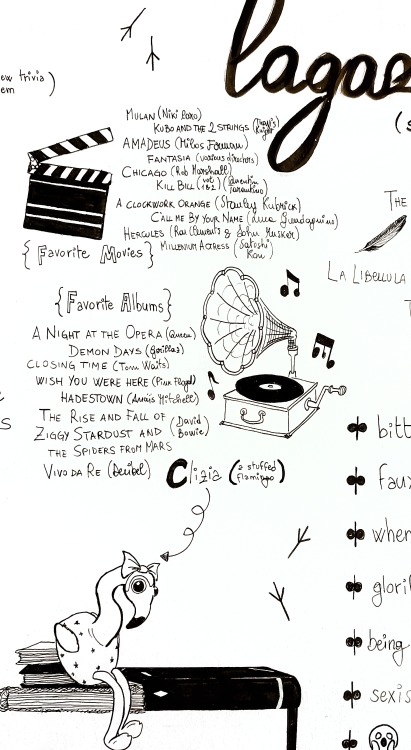 lagaz
ew trivia)
em
(s
MULAN (Niki Caro)
KUBO AND THE 2 STRINGS (Travis Knight)
AMADEUS (Milos Forman)
FANTASIA (various directors)
CHICAGO (Rob Marshall)
KILL BILL (vol 1&2) (Quentin Tarantino)
A CLOCKWORK ORANGE (Stanley Kubrick)
CALL ME BY YOUR NAME (Luca Guadagnino)
HERCULES (Ron Clements & John Musker)
MILLENNIUM ACTRESS (Satoshi Kon)
{Favorite Movies}
THE
LA LIBELLULA
T
{Favorite Albums}
A NIGHT AT THE OPERA (Queen)
DEMON DAYS (Gorillaz)
CLOSING TIME (Tom Waits)
WISH YOU WERE HERE (Pink Floyd)
HADESTOWN (Anaïs Mitchell)
THE RISE AND FALL OF
ZIGGY STARDUST AND
THE SPIDERS FROM MARS
(David Bowie)
VIVO DA RE (Decibel)
Clizia (a stuffed flamingo)
S
bitt
faux
when
glori
being
sexis